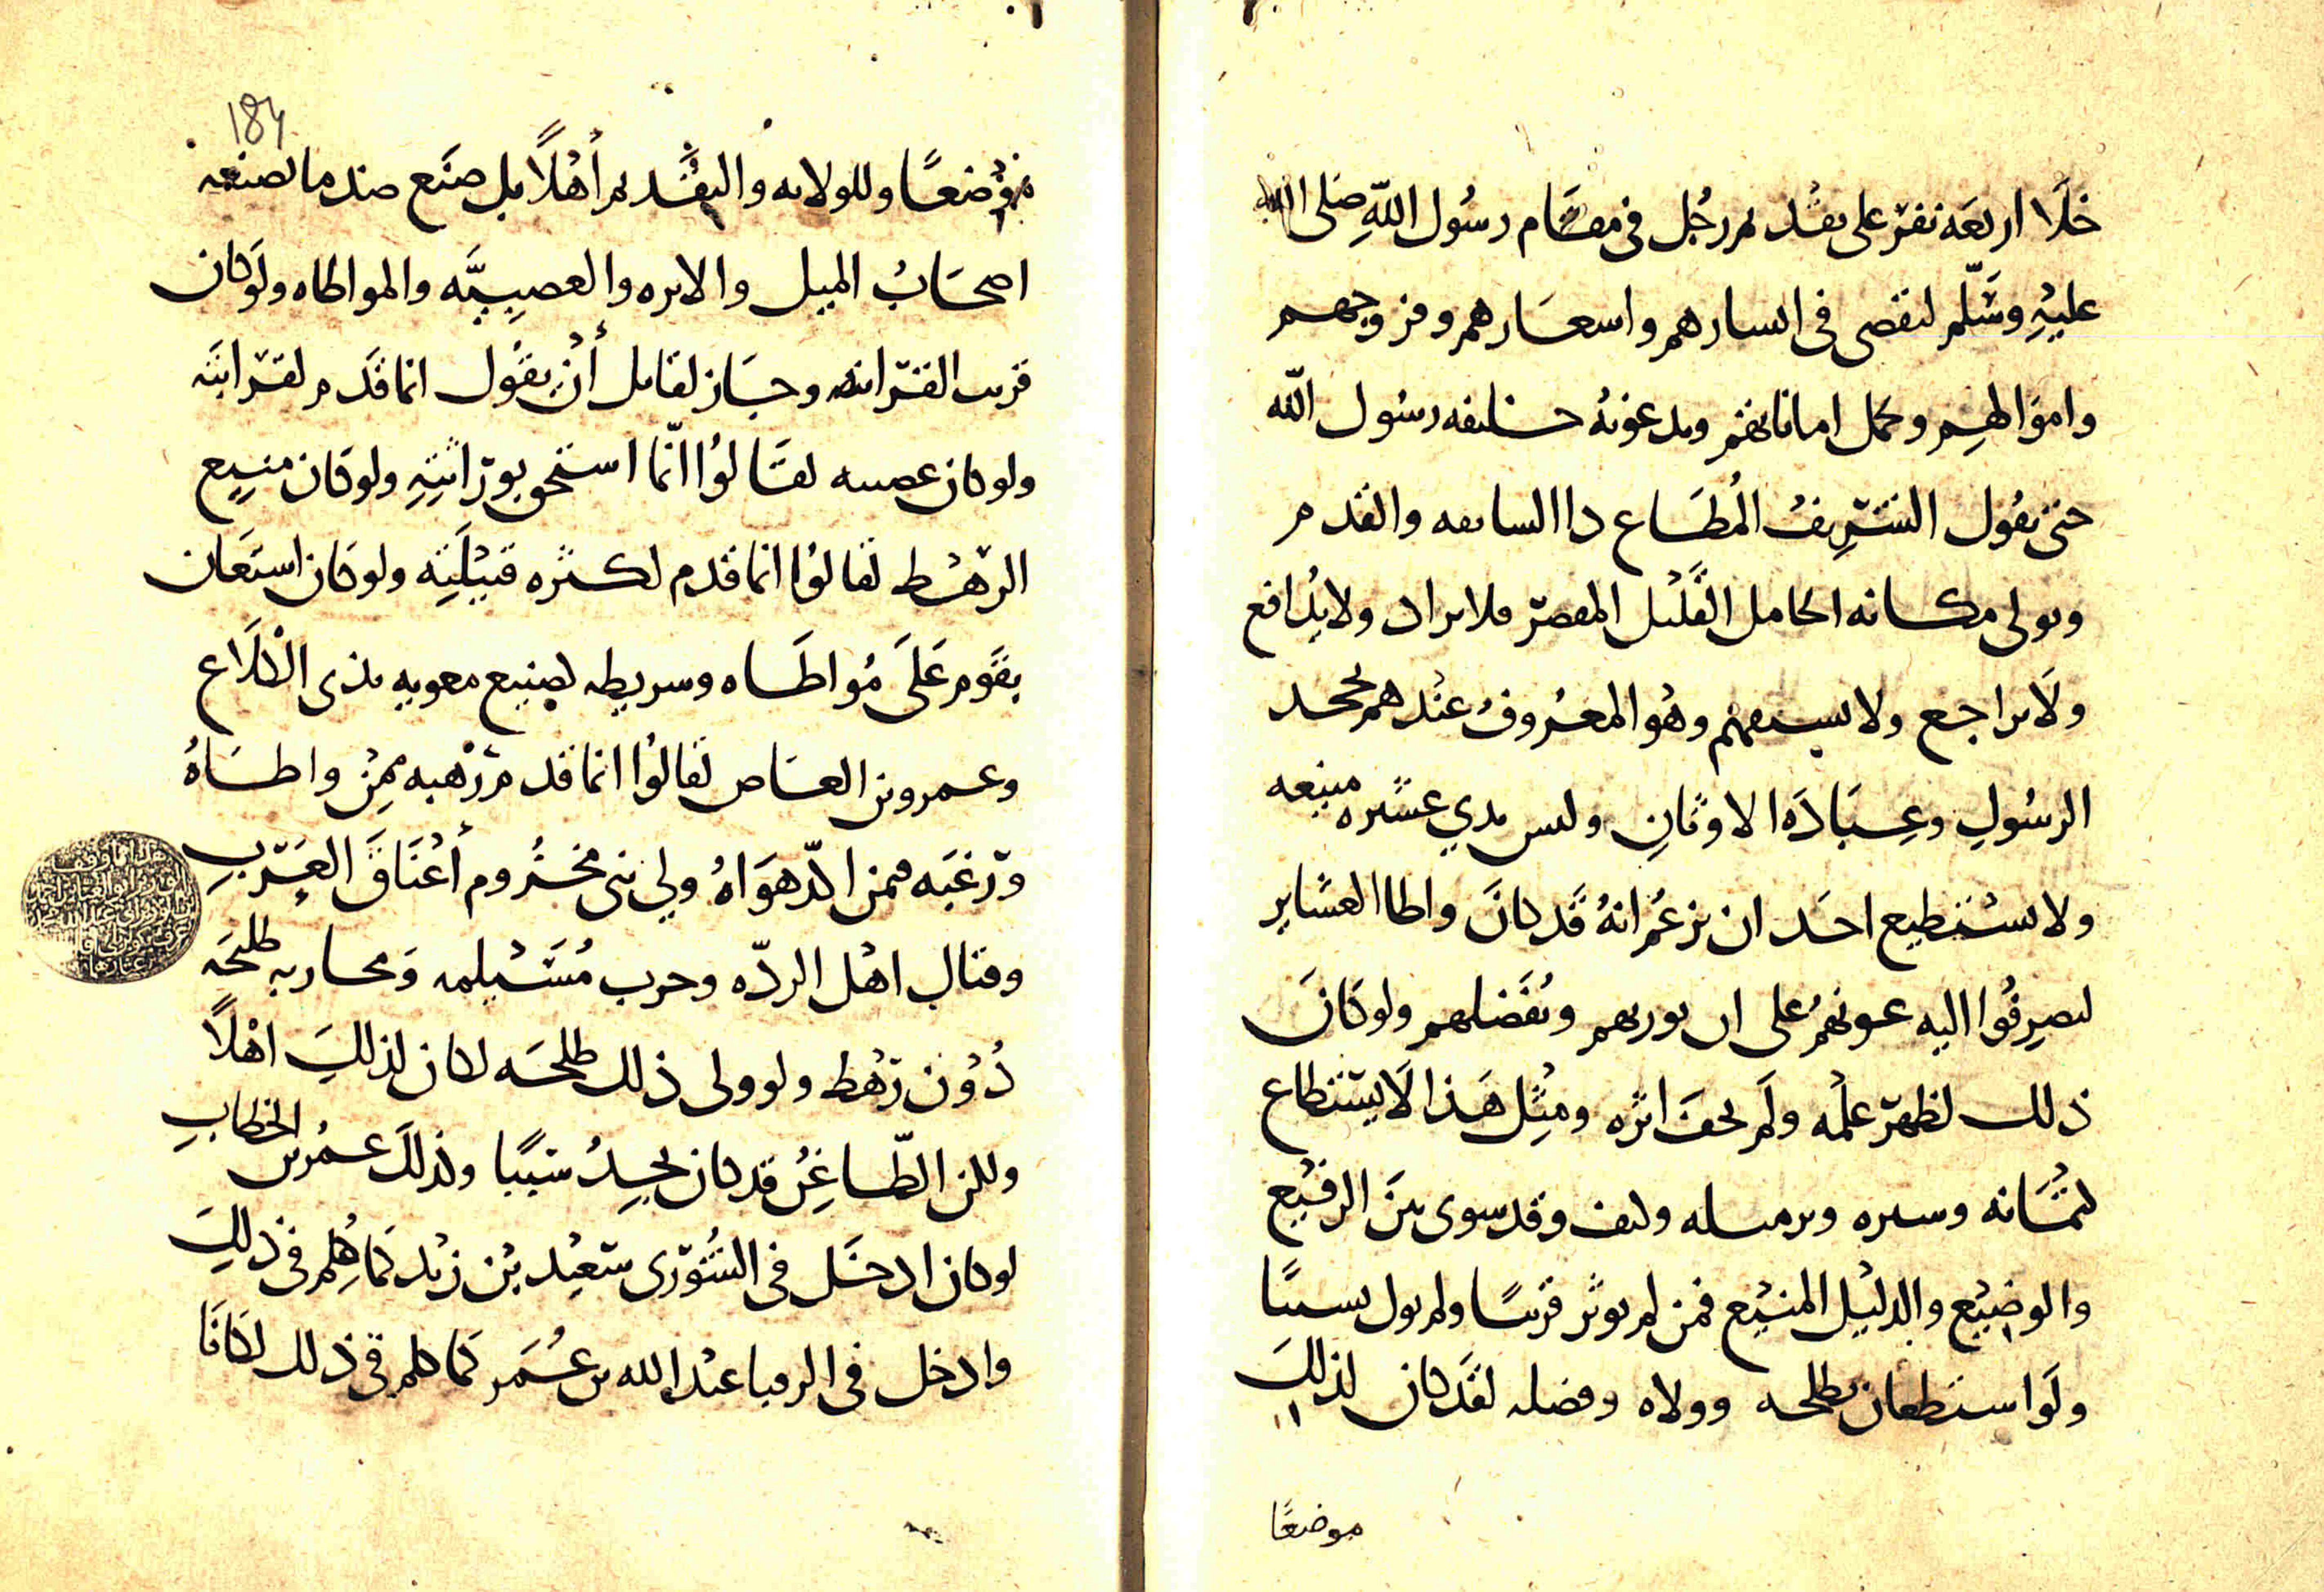 خلا اربعه نفر على تقديم رجل فى مقام رسول الله صلى الله
عليه وسلم لتقضى فى ابسارهم واسعارهم وفروجهم
واموالهم وحمل اماناتهم ويدعونه خليفه رسول الله
حتى يقول الشريف المطاع ذا السابقه والقدم
ويولى مكانه الخامل القليل المقصر فلا يراد ولا يدافع
ولا يراجع ولا يستفهم وهو المعروف عندهم بجحد
الرسول وعباده الاوثان وليس بذي عشيره منيعه
ولا يستطيع احد ان يزعم انه قد كان واطا العشاير
ليصرفوا اليه عونهم على ان يوربهم ويفضلهم ولو كان
ذلك لظهر علمه ولم يخف اثره ومثل هذا لا يستطاع
كتمانه وستره وكيف وقد سوى بين الرفيع
والوضيع والذليل المنيع فمن لم يوثر قريبا ولم يول نسيبا
ولو استعان بطلحه وولاه وفضله لقد كان لذلك
موضعا
184
موضعا وللولايه والتقديم أهلا بل صنع ضد ما يصنعه
اصحاب الميل والاثره والعصبيه والمواطاه ولو كان
قريب القرابه وجاز لقايل أن يقول انما قدم لقرابته
ولو كان عصبه لقالوا انما استحق بوراثته ولو كان منيع
الرهط لقالوا انما قدم لكثره قبيلته ولو كان استعان
بقوم على مواطاه وشريطه لصنيع معويه بذى الكلاع
وعمرو بن العاص لقالوا انما قدم رهبه ممن واطاه
ورغبه فيمن اكد هواه ولي بنى مخزوم أعناق العرب
وقتال اهل الرده وحرب مسيلمه ومحاربه طلحه
دون رهط ولو ولى ذلك طلحه لكان لذلك اهلا
ولكن الطاعن قد كان يجد سببا وكذلك عمر بن الخطاب
لو كان ادخل فى الشورى سعيد بن زيد كما كلم فى ذلك
وادخل فى الرقبا عبد الله بن عمر كما كلم فى ذلك لكانا